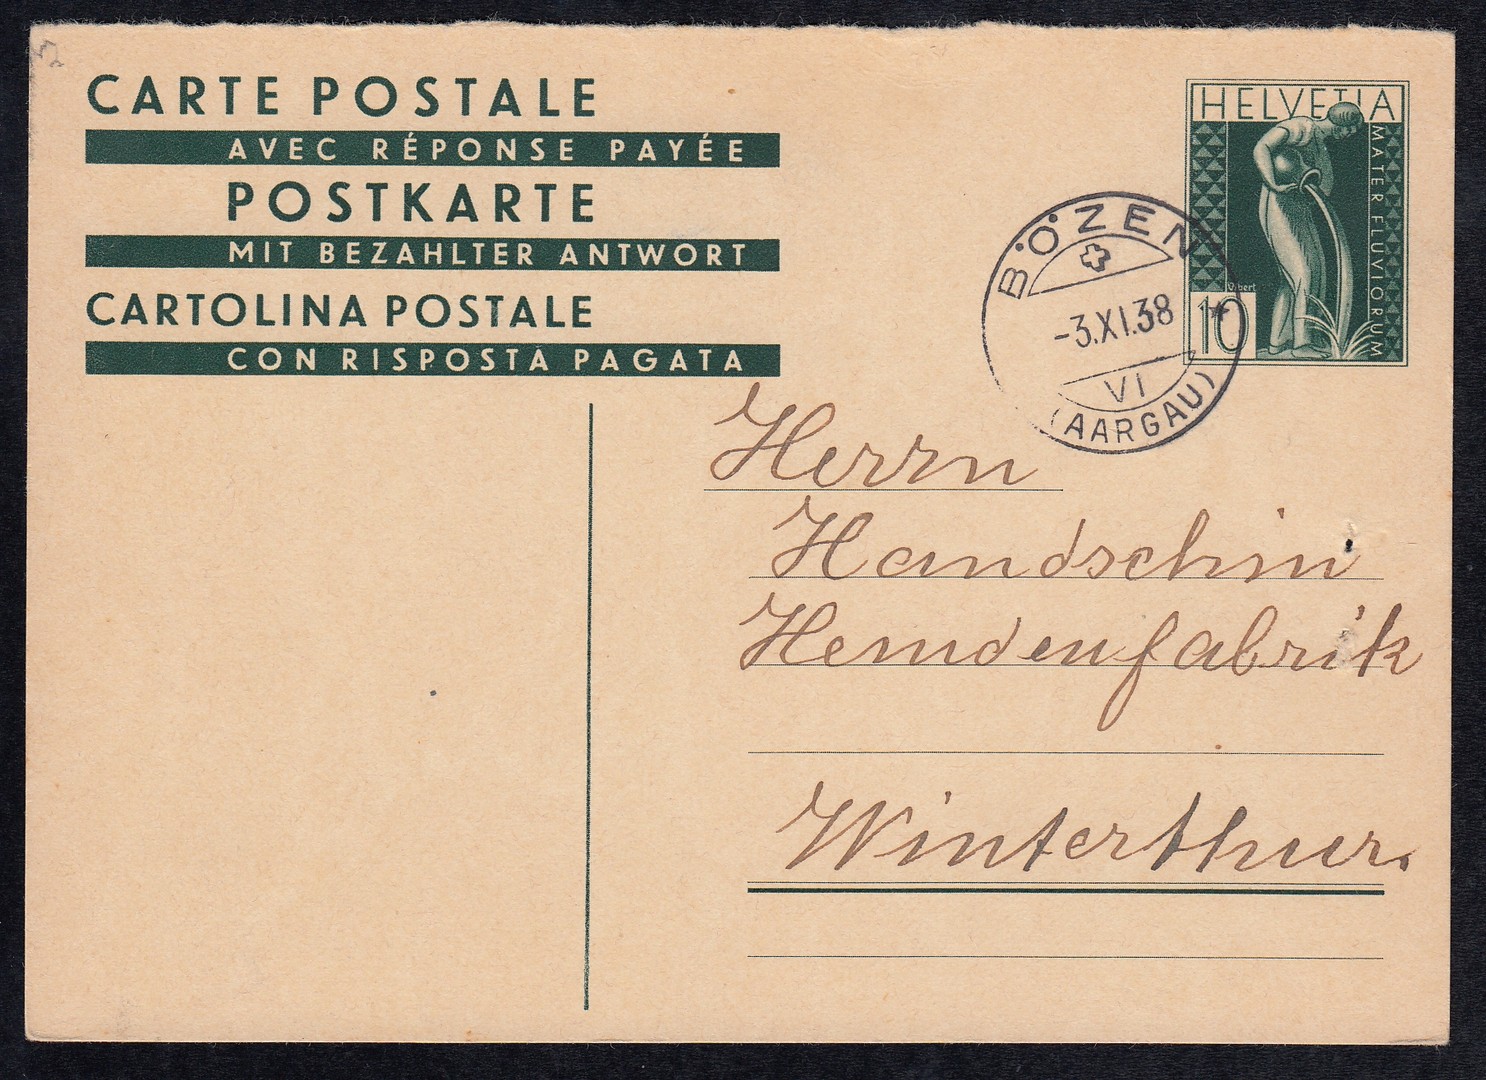 CARTE POSTALE
AVEC RÉPONSE PAYÉE
POSTKARTE
MIT BEZAHLTER ANTWORT
CARTOLINA POSTALE
CON RISPOSTA PAGATA
HELVETIA
MATER FLUVIORUM
10
BÖZEN
-3.XI.38
VI
(AARGAU)
Herrn
Handschin
Hemdenfabrik
Winterthur.